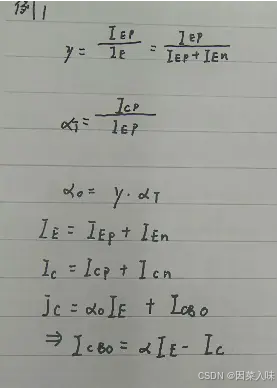 例 1
γ = I_EP / I_E = I_EP / (I_EP + I_En)
α_T = I_CP / I_EP
α_0 = γ · α_T
I_E = I_EP + I_En
I_C = I_CP + I_Cn
I_C = α_0 I_E + I_CBO
⇒ I_CBO = α I_E - I_C
CSDN @因菜入味